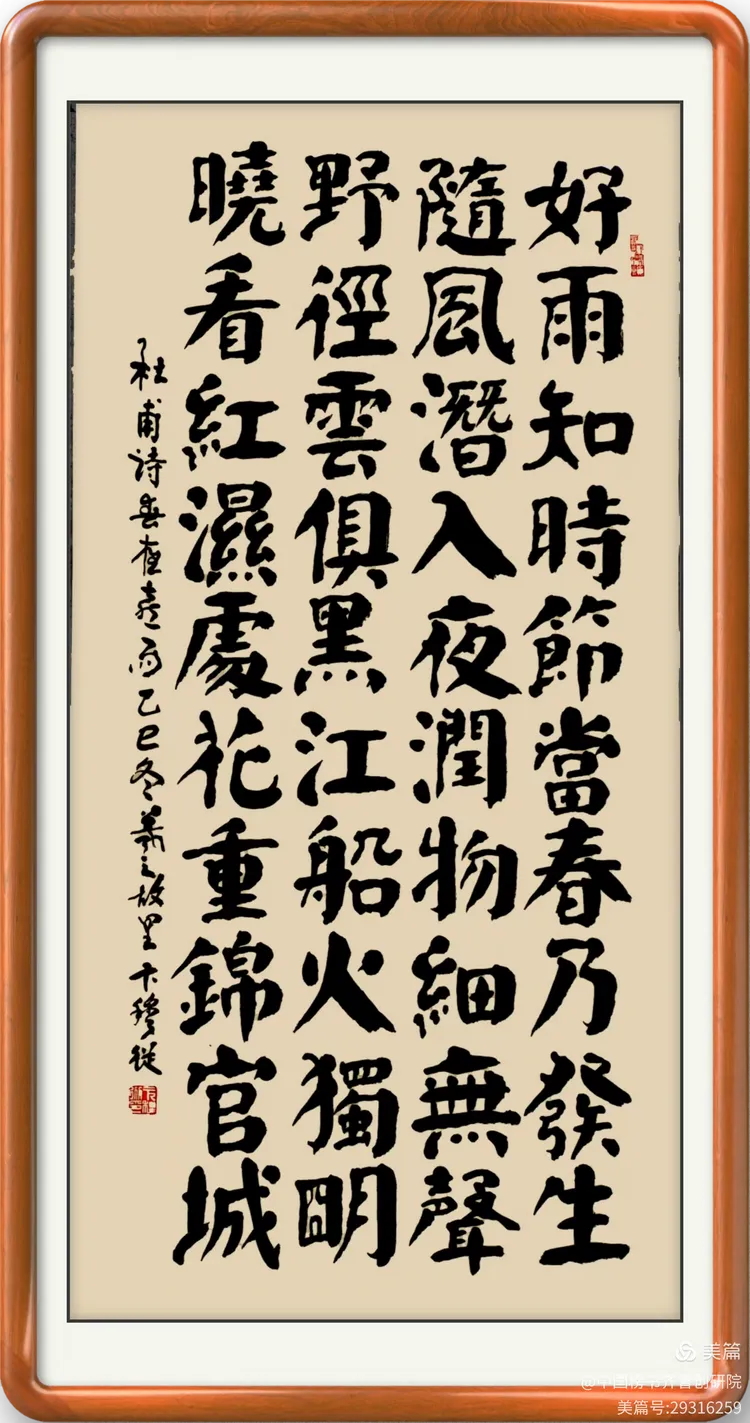 好雨知時節當春乃發生
隨風潛入夜潤物細無聲
野徑雲俱黑江船火獨明
曉看紅濕處花重錦官城
杜甫詩春夜喜雨乙巳冬羲之故里卞穆從
美篇
@中国榜书齐鲁创研院
美篇号:29316259